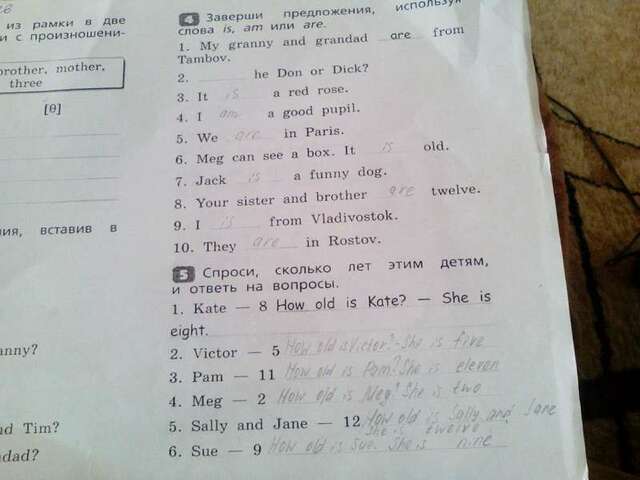 из рамки в две
и с произношени-
brother, mother,
three
[θ]
ния, вставив в
anny?
nd Tim?
ndad?
4 Заверши предложения, используя
слова is, am или are.
1. My granny and grandad are from
Tambov.
2. he Don or Dick?
3. It is a red rose.
4. I am a good pupil.
5. We are in Paris.
6. Meg can see a box. It is old.
7. Jack is a funny dog.
8. Your sister and brother are twelve.
9. I is from Vladivostok.
10. They are in Rostov.
5 Спроси, сколько лет этим детям,
и ответь на вопросы.
1. Kate — 8 How old is Kate? — She is
eight.
2. Victor — 5 How old is Victor? - She is five
3. Pam — 11 How old is Pam? She is eleven
4. Meg — 2 How old is Meg? She is two
5. Sally and Jane — 12 How old is Sally and Jane
She is twelve
6. Sue — 9 How old is Sue. She is nine